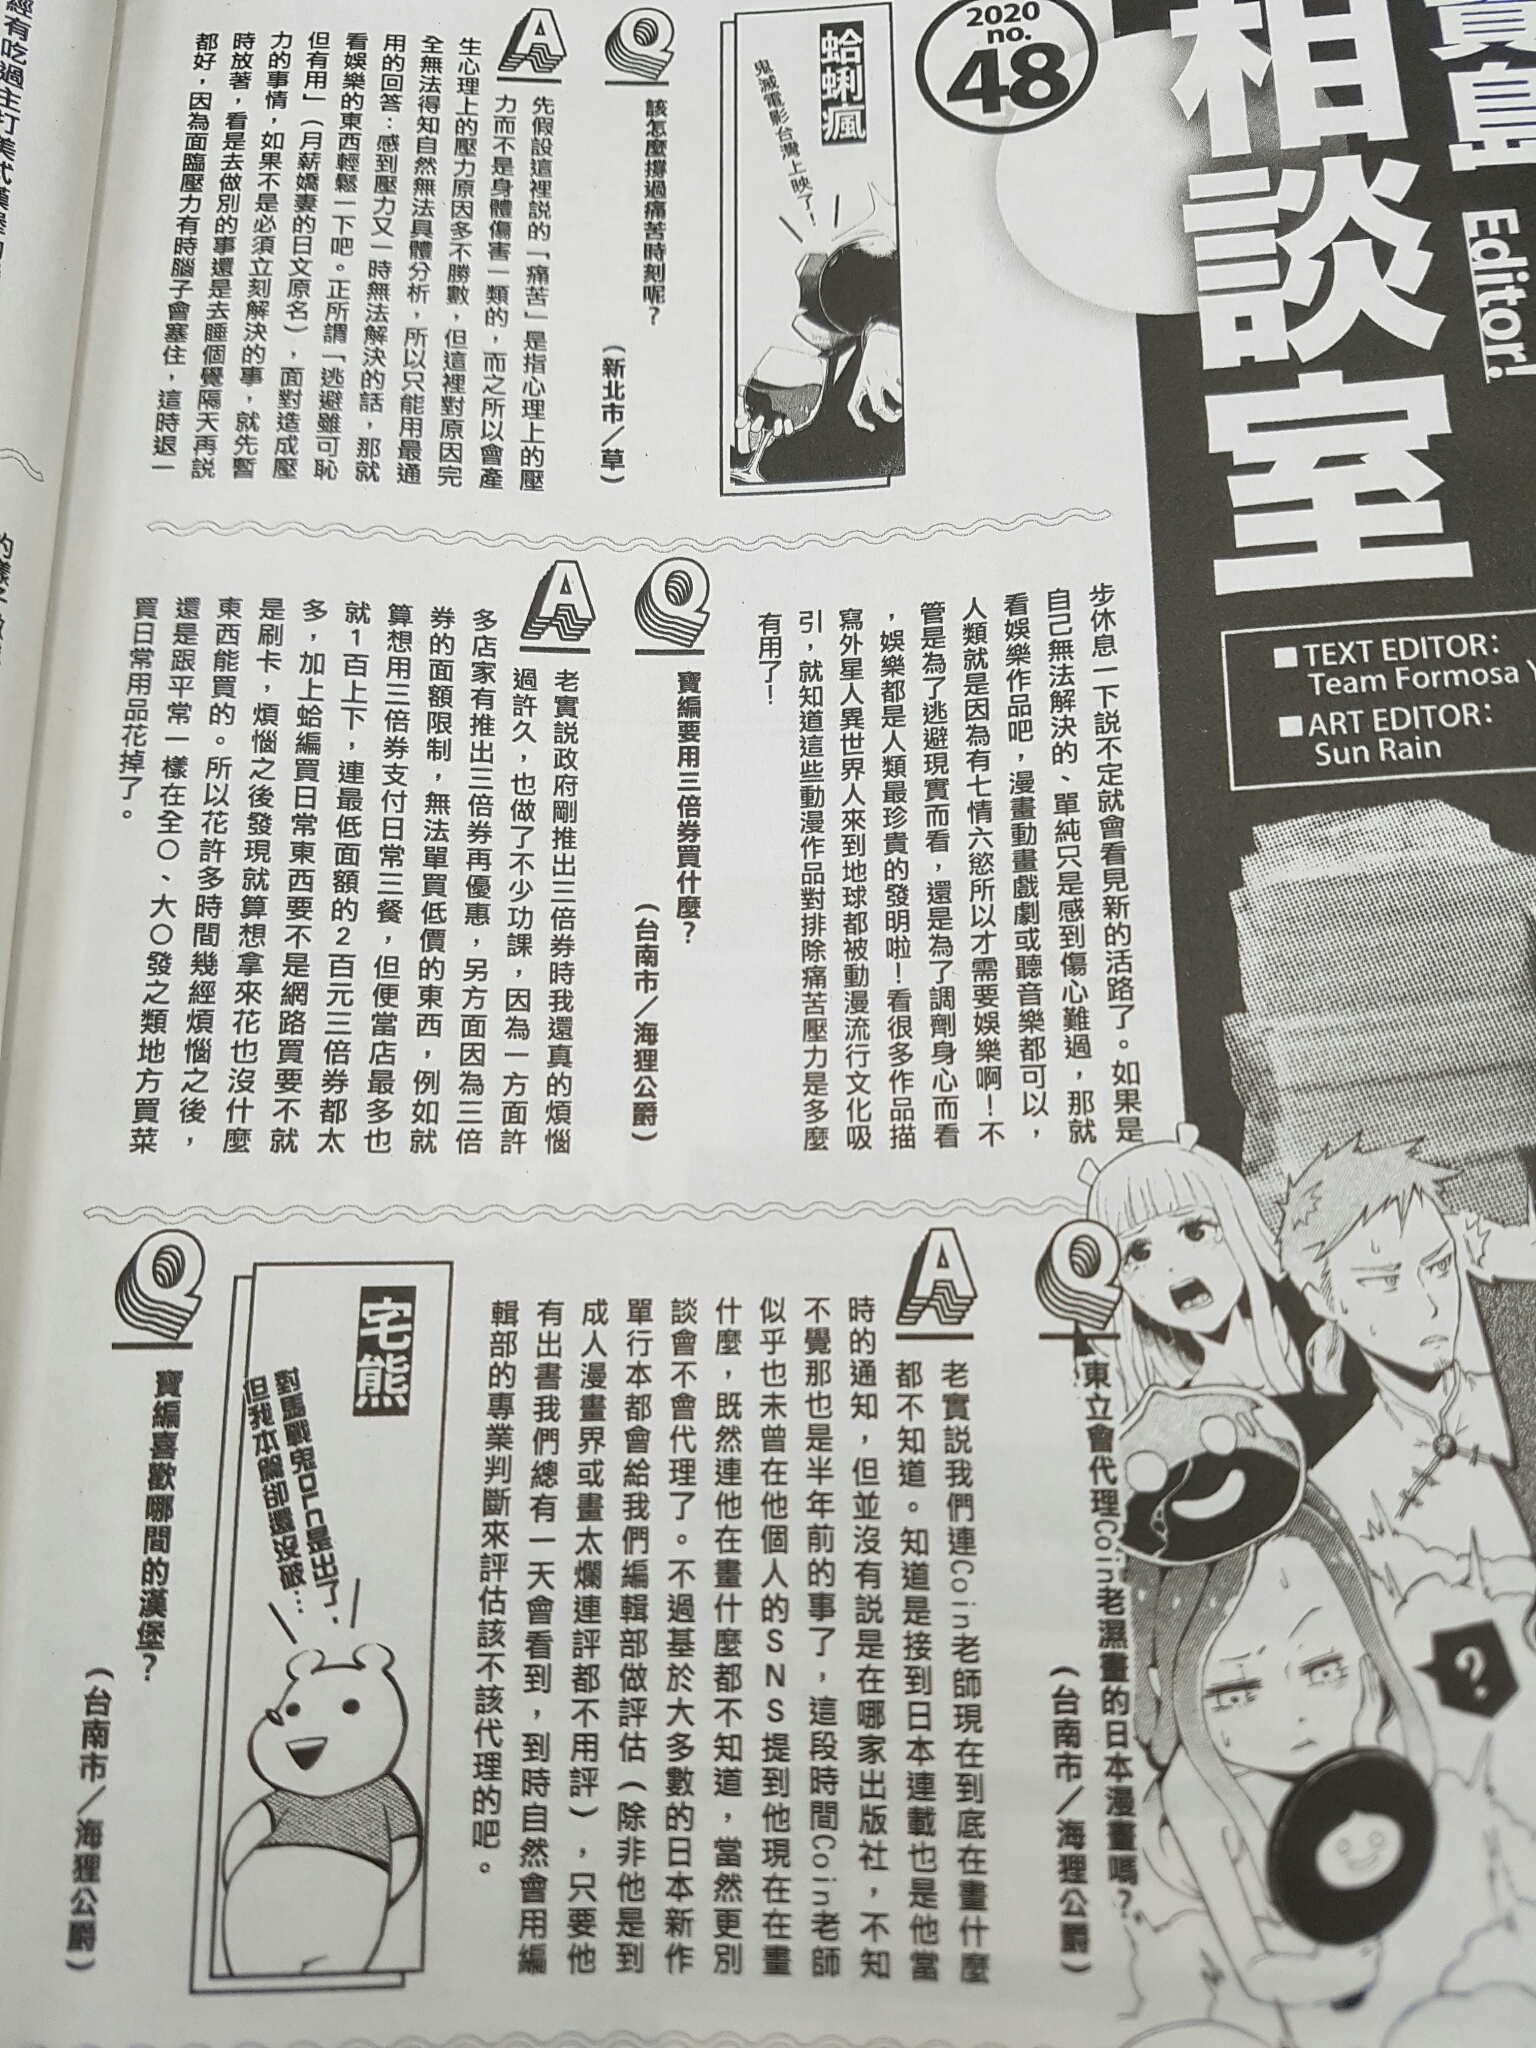 寶島
相談室
Editor!
2020
no.
48
■TEXT EDITOR:
Team Formosa Y
■ART EDITOR:
Sun Rain
蛤蜊瘋
鬼滅電影台灣上映了!
Q
該怎麼撐過痛苦時刻呢?
(新北市/草)
A
先假設這裡說的「痛苦」是指心理上的壓
力而不是身體傷害一類的,而之所以會產
生心理上的壓力原因多不勝數,但這裡對原因完
全無法得知自然無法具體分析,所以只能用最通
用的回答:感到壓力又一時無法解決的話,那就
看娛樂的東西輕鬆一下吧。正所謂「逃避雖可恥
但有用」(月薪嬌妻的日文原名),面對造成壓
力的事情,如果不是必須立刻解決的事,就先暫
時放著,看是去做別的事還是去睡個覺隔天再說
都好,因為面臨壓力有時腦子會塞住,這時退一
步休息一下說不定就會看見新的活路了。如果是
自己無法解決的、單純只是感到傷心難過,那就
看娛樂作品吧,漫畫動畫戲劇或聽音樂都可以,
人類就是因為有七情六慾所以才需要娛樂啊!不
管是為了逃避現實而看,還是為了調劑身心而看
,娛樂都是人類最珍貴的發明啦!看很多作品描
寫外星人異世界人來到地球都被動漫流行文化吸
引,就知道這些動漫作品對排除痛苦壓力是多麼
有用了!
Q
寶編要用三倍券買什麼?
(台南市/海狸公爵)
A
老實說政府剛推出三倍券時我還真的煩惱
過許久,也做了不少功課,因為一方面許
多店家有推出三倍券再優惠,另方面因為三倍
券的面額限制,無法單買低價的東西,例如就
算想用三倍券支付日常三餐,但便當店最多也
就1百上下,連最低面額的2百元三倍券都太
多,加上蛤編買日常東西要不是網路買要不就
是刷卡,煩惱之後發現就算想拿來花也沒什麼
東西能買的。所以花許多時間幾經煩惱之後,
還是跟平常一樣在全〇、大〇發之類地方買菜
買日常用品花掉了。
Q
東立會代理Coin老濕畫的日本漫畫嗎?
(台南市/海狸公爵)
A
老實說我們連Coin老師現在到底在畫什麼
都不知道。知道是接到日本連載也是他當
時的通知,但並沒有說是在哪家出版社,不知
不覺那也是半年前的事了,這段時間Coin老師
似乎也未曾在他個人的SNS提到他現在在畫
什麼,既然連他在畫什麼都不知道,當然更別
談會不會代理了。不過基於大多數的日本新作
單行本都會給我們編輯部做評估(除非他是到
成人漫畫界或畫太爛連評都不用評),只要他
有出書我們總有一天會看到,到時自然會用編
輯部的專業判斷來評估該不該代理的吧。
宅熊
對馬戰鬼DLC是出了,
但我本篇卻還沒破…
Q
寶編喜歡哪間的漢堡?
(台南市/海狸公爵)
經有吃過主打美式漢堡
?